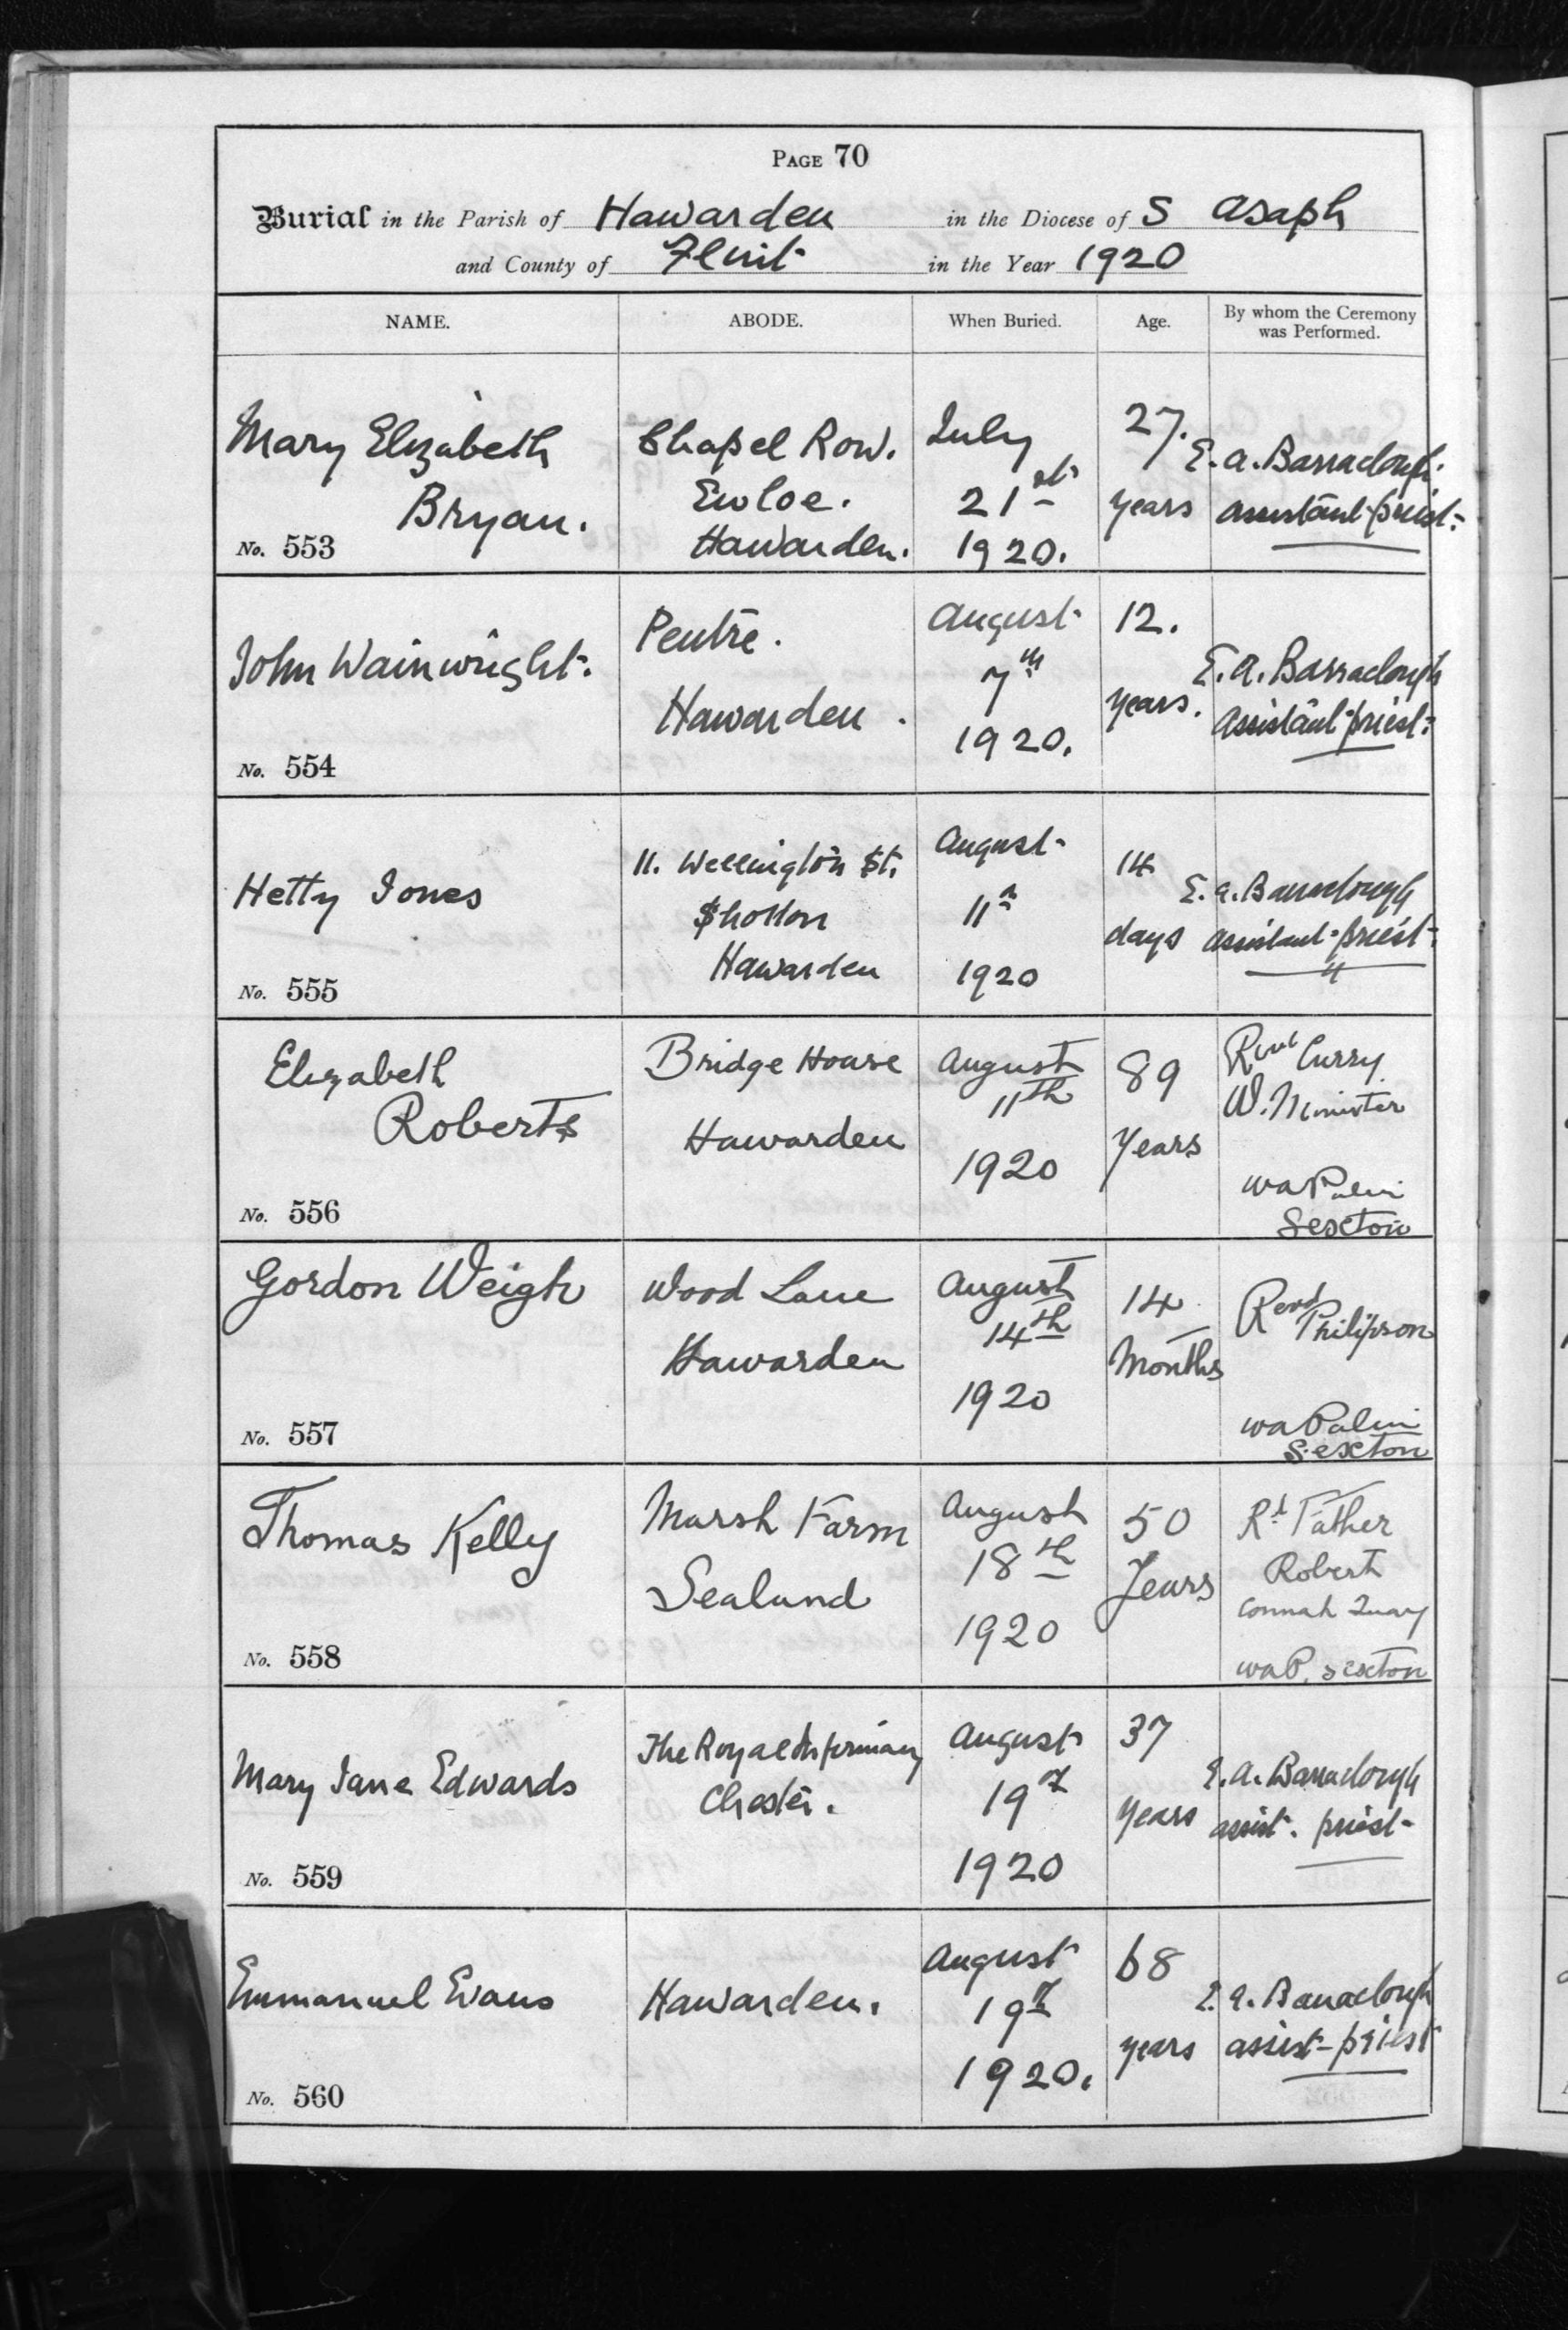 PAGE 70
Burial in the Parish of Hawarden in the Diocese of S Asaph
and County of Flint in the Year 1920
NAME. ABODE. When Buried. Age. By whom the Ceremony was Performed.
Mary Elizabeth
Bryan.
No. 553
Chapel Row.
Ewloe.
Hawarden.
July
21st
1920.
27.
years
E. A. Barraclough.
assistant-priest-
John Wainwright.
No. 554
Pentre.
Hawarden.
August
7th
1920.
12.
years.
E. A. Barraclough
Assistant-priest-
Hetty Jones
No. 555
11. Wellington St.
Shotton
Hawarden
August
11th
1920
14
days
E. A. Barraclough
assistant-priest-
Elizabeth
Roberts
No. 556
Bridge House
Hawarden
August
11th
1920
89
Years
Revd Curry
W. Minister
W A
Sexton
Gordon Weigh
No. 557
Wood Lane
Hawarden
August
14th
1920
14
Months
Revd
Philipson
W A
Sexton
Thomas Kelly
No. 558
Marsh Farm
Sealand
August
18th
1920
50
Years
Rd Father
Robert
Connah Quay
W A P. Sexton
Mary Jane Edwards
No. 559
The Royal Infirmary
Chester.
August
19th
1920
37
years
E. A. Barraclough
assist. priest-
Emmanuel Evans
No. 560
Hawarden.
August
19th
1920.
68
years
E. A. Barraclough
assist-priest